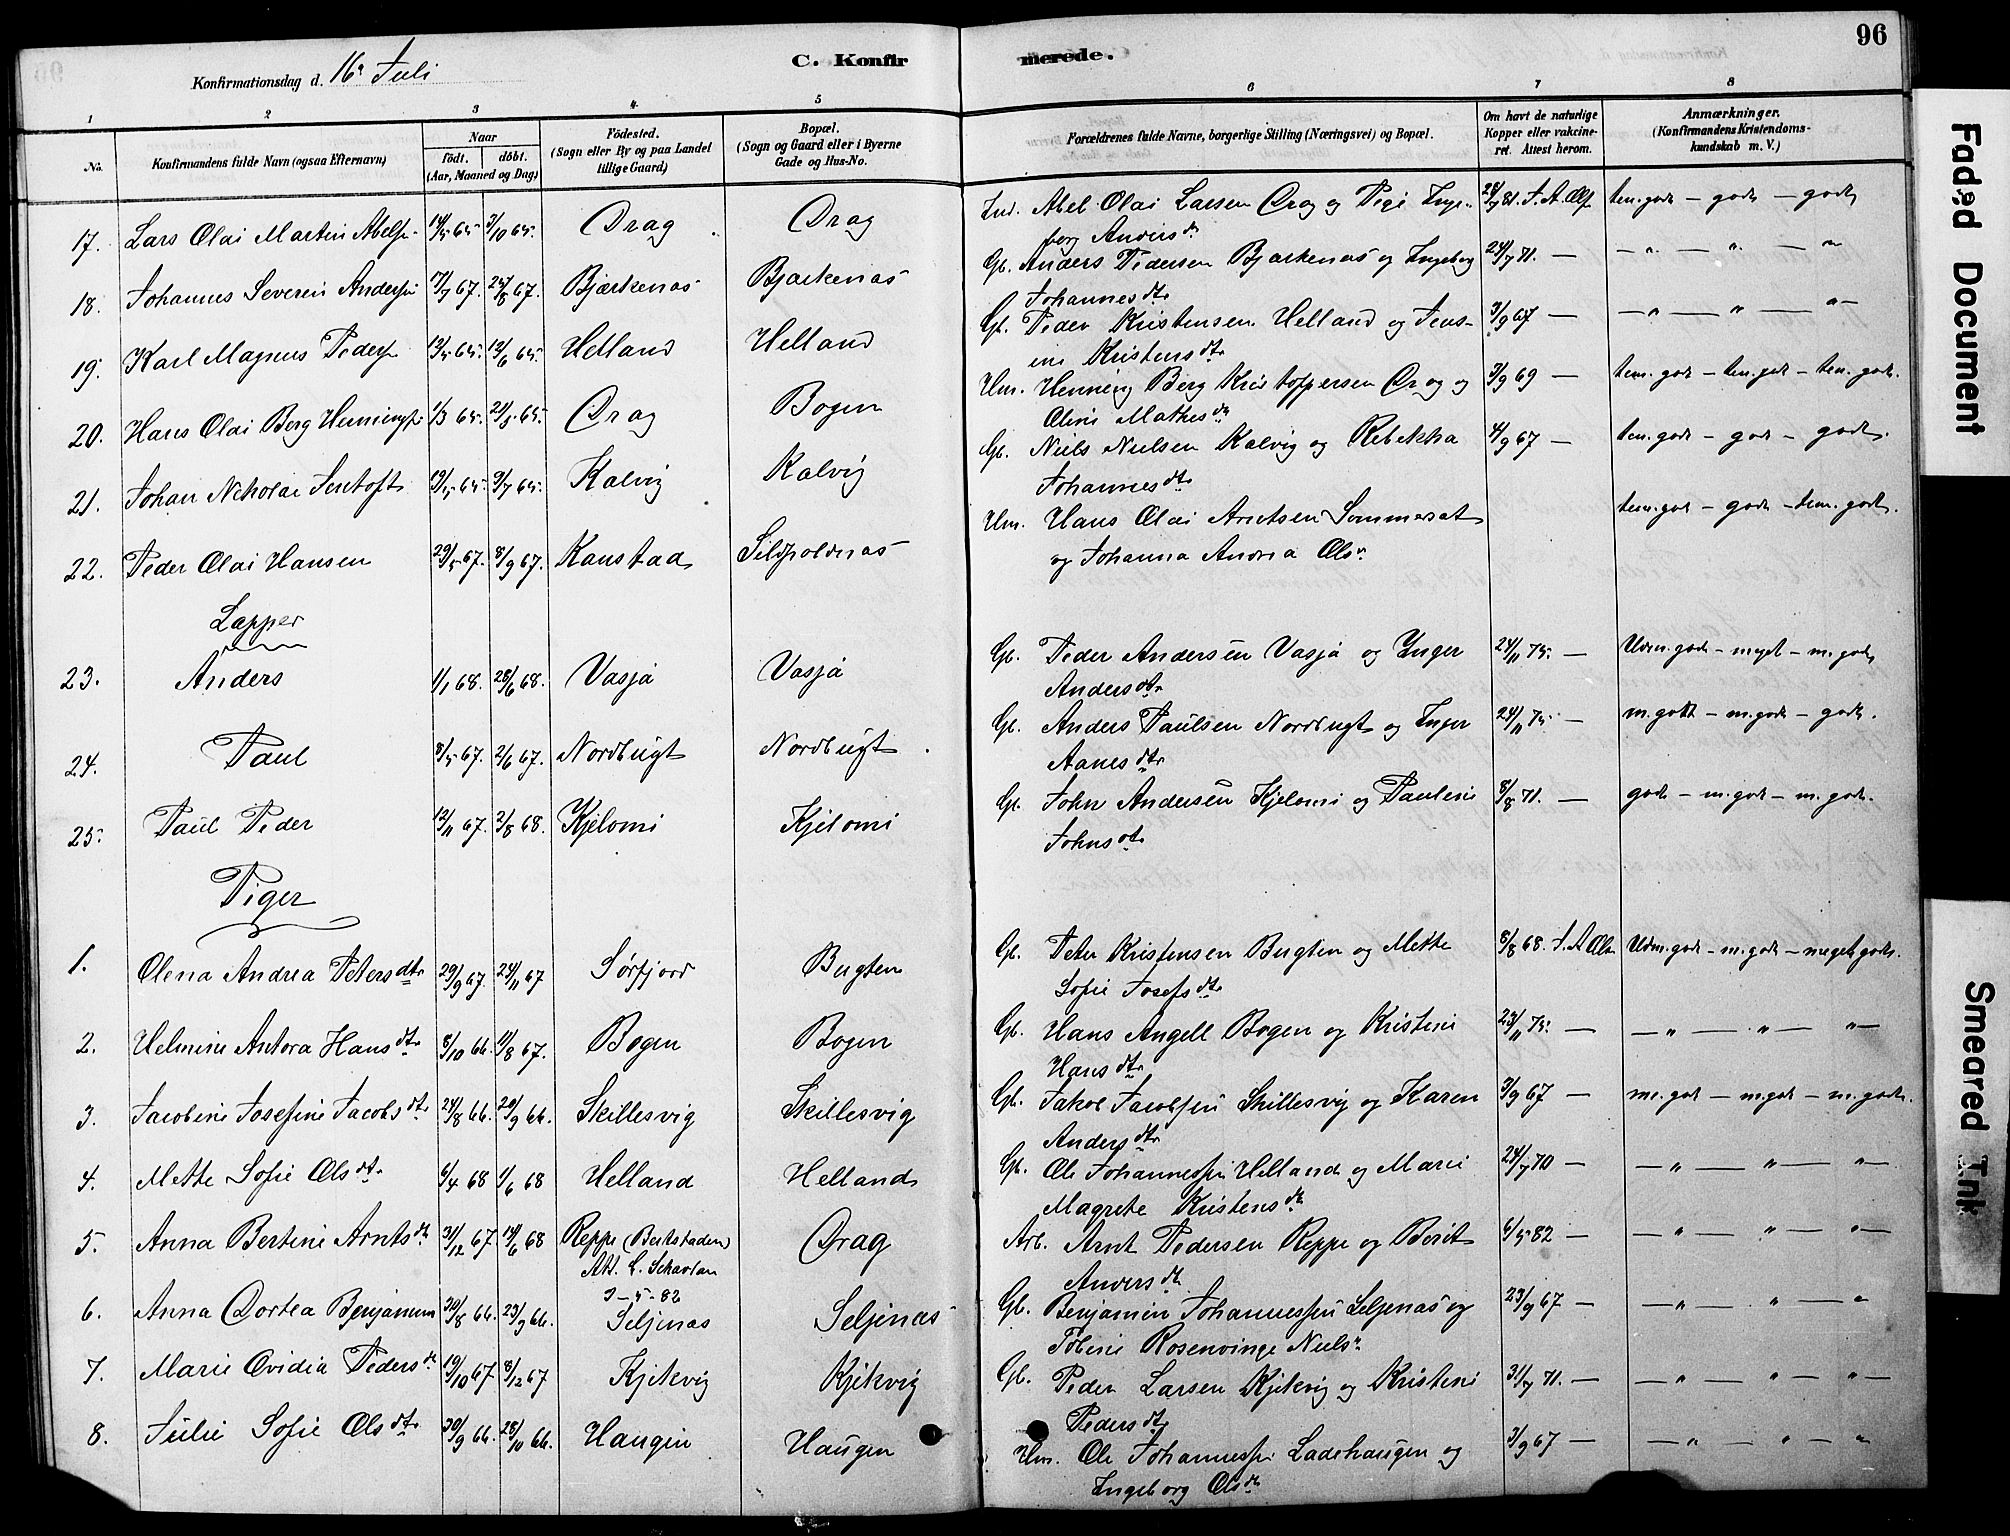 96
Konfirmationsdag d. 16de Juli
C. Konfirmerede.
1 2 3 4 5 6 7 8
No.
Konfirmandens fulde Navn (ogsaa Efternavn)
Naar
födt. döbt.
(Aar, Maaned og Dag)
Födested.
(Sogn eller By og paa Landet
tillige Gaard)
Bopæl.
(Sogn og Gaard eller i Byerne
Gade og Hus-No.
Forældrenes fulde Navne, borgerlige Stilling (Næringsvei) og Bopæl.
Om havt de naturlige
Kopper eller vakcine-
ret. Attest herom.
Anmærkninger.
(Konfirmandens Kristendoms-
kundskab m. V.)
17. Lars Olai Martin Abels. 14/5 65. 3/10 65. Drag Drag Ind. Abel Olai Larsen Drag og Pige Inge-
berg Andersdtr 28/7 81. tem. godt – godt – godt
18. Johannes Severin Anders. 17/7 67. 24/8 67. Bjærkenas Bjarkenas Gb. Anders Pedersen Bjarkenas og Ingeborg
Johannesdtr 24/7 71. — — " — " — "
19. Karl Magnus Peders. 13/5 65. 12/6 65. Helland Helland Gb. Peder Kristensen Helland og Jens-
ine Kristensdtr 3/9 67 — — " — " — "
20. Hans Olai Berg Hennings. 1/3 65. 21/5 65. Drag Bogen Hm. Henning Berg Kristoffersen Drag og
Oline Mathesdtr 3/9 69 — tem. godt – tem. godt – tem. godt.
21. Johan Nikolai 19/5 65. 9/7 65. Kalvig Kalvig Gb. Niels Nielsen Kalvig og Rebekka
Johannesdtr 4/9 67 — tem. godt – godt – godt.
22. Peder Olai Hansen 29/5 67. 8/9 67. Kanstad Hm. Hans Olai Arntsen Sommerset
og Johanna Andrea Olsdtr tem. godt – godt – tem. godt.
Lapper
23. Anders 1/1 68. 28/6 68. Vasja Vasja Gb. Peder Andersen Vasja og Inger
Andersdtr 24/11 75. — Udm. godt – meget – m. godt
24. Paul 8/5 67. 2/6 67. Nordbugt Nordbugt Gb. Anders Paulsen Nordbugt og Inger
Aanesdtr 24/11 75. — m. godt – m. godt – godt.
25. Paul Peder 12/11 67. 2/8 68. Kjelomi Kjelomi Gb. John Andersen Kjelomi og Pauline
Johnsdtr 8/8 71. — godt – m. godt – m. godt.
Piger
1. Olena Andrea Petersdtr 29/9 67. 24/11 67 Sörfjord Bugten Gb. Peter Kristensen Bugten og Mette
Sofie Josefsdtr 8/8 68. Udm. godt – m. godt – meget godt.
2. Helmine Antora Hansdtr 8/10 66. 11/8 67. Bogen Bogen Gb. Hans Angell Bogen og Kristine
Hansdtr 23/11 75. — — " — " — "
3. Jacobine Josefine Jacobsdtr 24/8 66. 29/9 66. Skillesvig Skillesvig Gb. Jakob Jacobsen Skillesvig og Karen
Andersdtr 3/9 67 — m. godt – m. godt – m. godt.
4. Mette Sofie Olsdtr 6/4 68 1/6 68 Helland Helland Gb. Ole Johannessen Helland og Marie
Magrete Kristensdtr 24/7 70 — — " — " — "
5. Anna Bertine Arntsdtr 31/12 67. 14/6 68 Reppe (Bakstaden)
Att. L. Schavlan
3-5-82 Drag Arb. Arnt Pedersen Reppe og Berit
Andersdtr 6/5 82 — — " — " — "
6. Anna Dortea Benjamins 30/8 66. 23/9 66. Seljenas Seljenas Gb. Benjamin Johannessen Seljenas og
Tobine Rosenvinge Niels 23/9 67 — — " — " — "
7. Marie Ovidia Pedersdtr 19/10 67 8/12 67 Kjikvig Kjikvig Gb. Peder Larsen Kjikvig og Kristine
Pedersdtr 31/7 71. — — " — " — "
8. Julie Sofie Olsdtr 30/9 66. 28/10 66. Haugen Haugen Hm. Ole Johannessen Ladehaugen og
Ingeborg Olsdtr 3/9 67 — — " — " — "
Faded Document
Smeared Ink